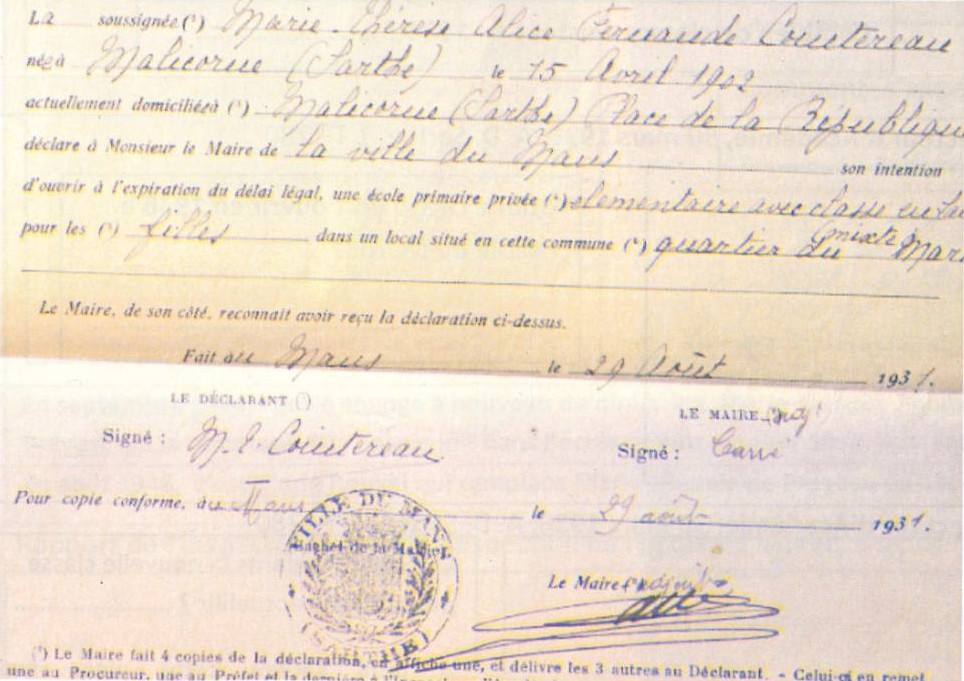 La soussignée (¹) Marie-Thérèse Alice Fernande Cointereau
née à Malicorne (Sarthe) le 15 Avril 1902
actuellement domiciliée à (¹) Malicorne (Sarthe) Place de la République
déclare à Monsieur le Maire de la ville du Mans son intention
d'ouvrir à l'expiration du délai légal, une école primaire privée (²) élémentaire avec classe enfan
mixte
pour les (³) filles dans un local situé en cette commune (⁴) quartier du Mar
Le Maire, de son côté, reconnait avoir reçu la déclaration ci-dessus.
Fait au Mans le 29 Août 1931.
LE DÉCLARANT ( ) LE MAIRE adj
Signé : M. T. Cointereau Signé :
Pour copie conforme, au Mans le 29 août 1931.
VILLE DU MANS
Cachet de la Mairie
(SARTHE)
Le Maire adjoint
(¹) Le Maire fait 4 copies de la déclaration, en affiche une, et délivre les 3 autres au Déclarant. - Celui-ci en remet
une au Procureur, une au Préfet et la dernière à l'Inspection